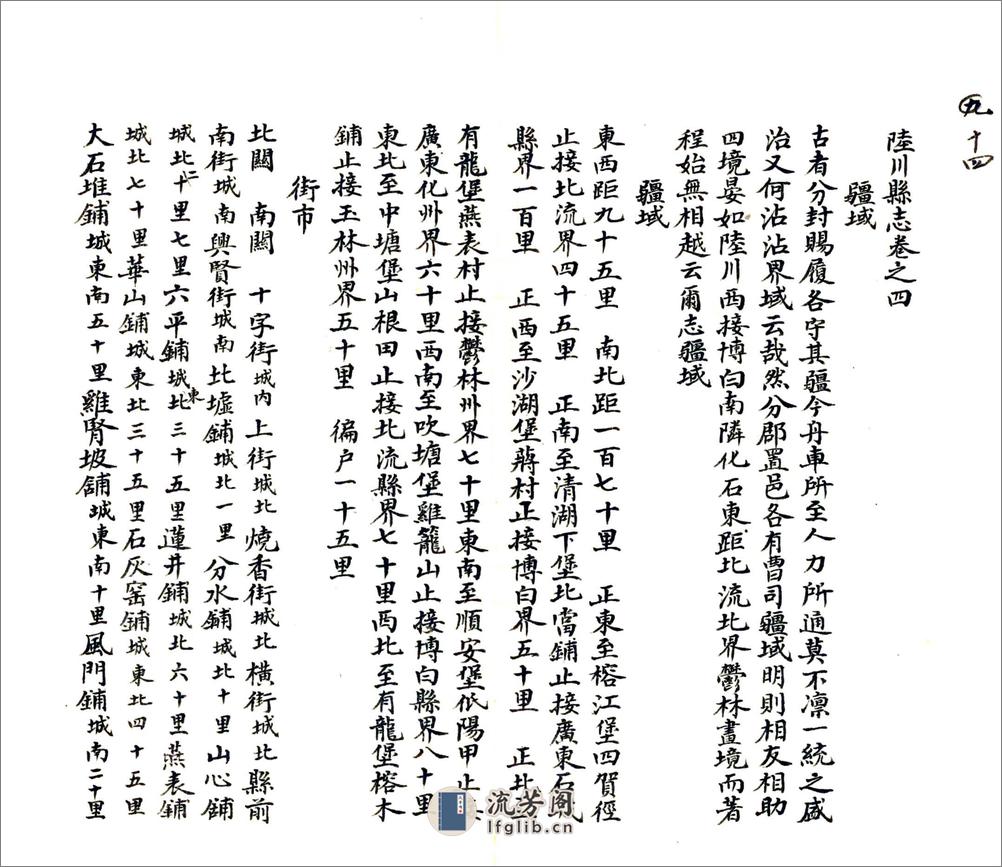 九 十四
陸川縣志卷之四
疆域
古者分封賜履各守其疆今舟車所至人力所通莫不凜一統之盛
治又何沾沾界域云哉然分郡置邑各有曹司疆域明則相友相助
四境晏如陸川西接博白南隣化石東距北流北界鬱林畫境而著
程始無相越云爾志疆域
疆域
東西距九十五里 南北距一百七十里 正東至榕江堡四賀徑
止接北流界四十五里 正南至清湖下堡北當鋪止接廣東石
縣界一百里 正西至沙湖堡蔣村正接博白界五十里 正北
有龍堡燕表村止接鬱林州界七十里東南至順安堡低陽甲止
廣東化州界六十里西南至吹塘堡雞籠山止接博白縣界八十里
東北至中塘堡山根田止接北流縣界七十里西北至有龍堡榕木
鋪止接玉林州界五十里 徧户一十五里
街市
北關 南關 十字街城内上街城北燒香街城北橫街城北縣前
南街城南興賢街城南北墟鋪城北一里分水鋪城北十里山心鋪
城北二十里七里六平鋪城東北三十五里蓮井鋪城北六十里燕表鋪
城北七十里華山鋪城東北三十五里石灰窑鋪城東北四十五里
大石堆鋪城東南五十里雞腎坡舖城東南十里風門鋪城南二十里
流芳阁
lfglib.cn